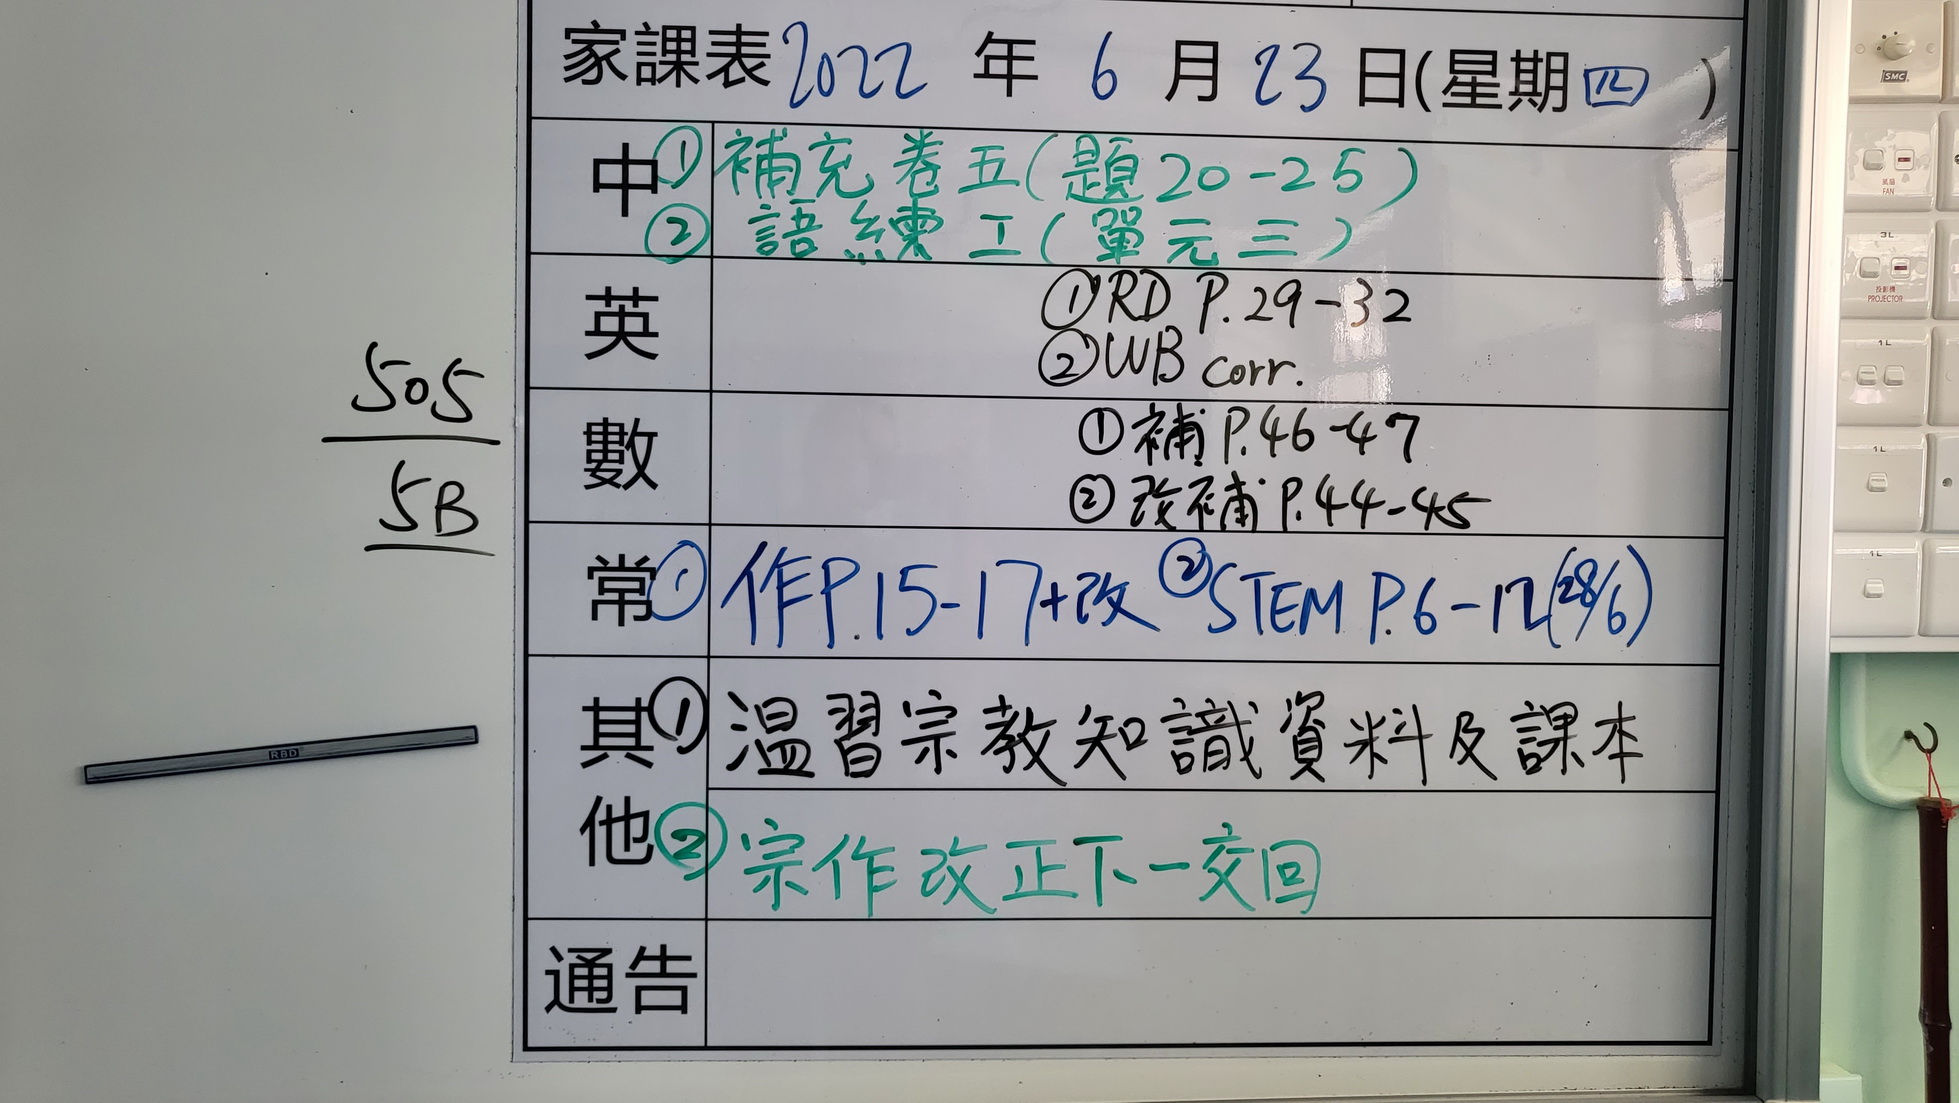 家課表 2022 年 6 月 23 日(星期四)
中 ①補充卷五(題20-25)
②語練工(單元三)
英 ①RD P.29-32
②WB corr.
數 ①補 P.46-47
②改補 P.44-45
常 ①作P.15-17+改 ②STEM P.6-12(28/6)
其他 ①溫習宗教知識資料及課本
②宗作改正下一交回
通告
505
5B
RBD
SMC
風扇
FAN
3L
投影機
PROJECTOR
1L
1L
1L